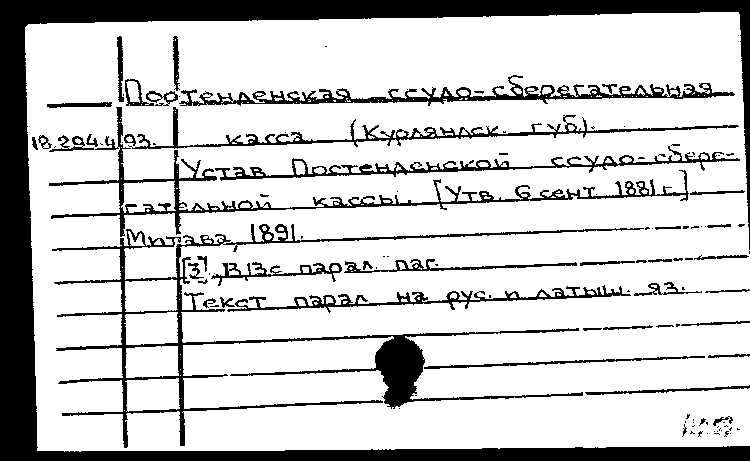 Постенденская ссудо-сберегательная
18.294.4.93. касса (Курляндск. губ).
Устав Постенденской ссудо-сбере-
гательной кассы. [Утв. 6 сент. 1881 г.]
Митава, 1891.
[3], 13, 13 с. парал. паг.
Текст парал. на рус. и латыш. яз.